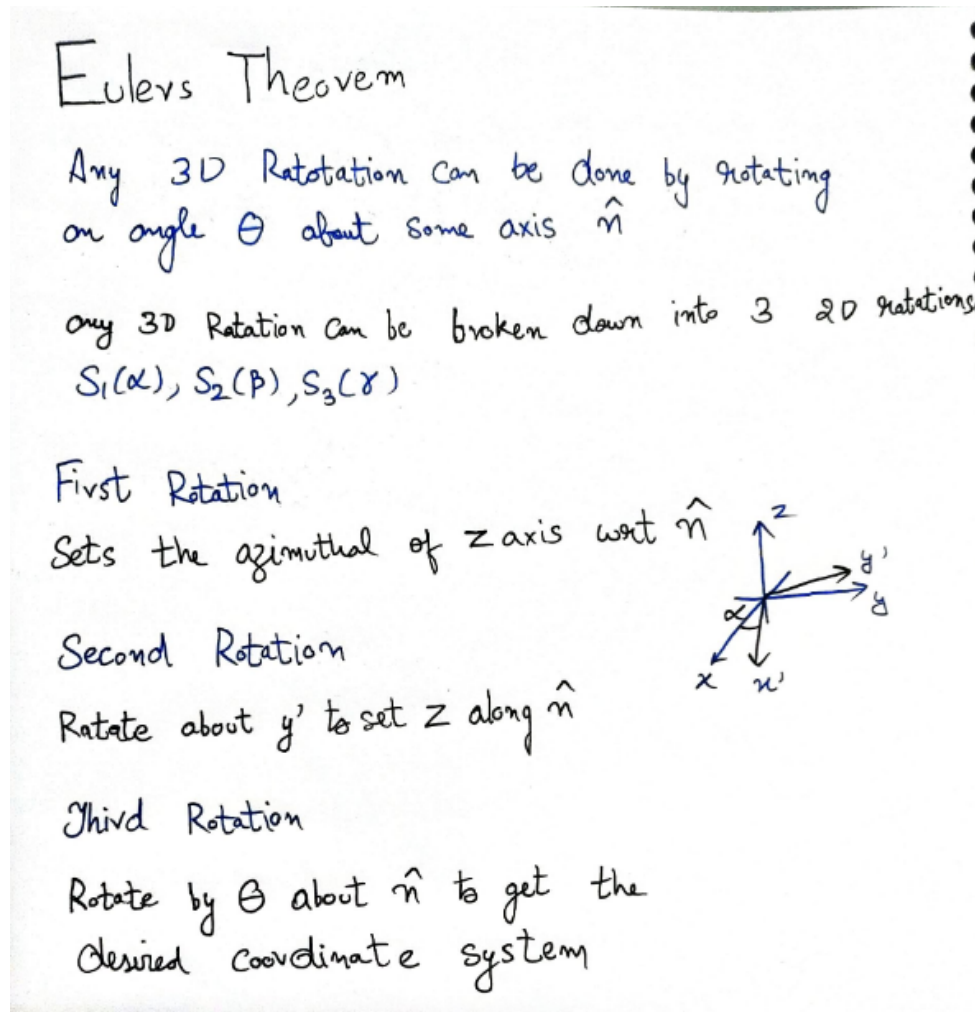 Eulers Theorem
Any 3D Ratotation can be done by rotating
an angle θ about some axis n̂
any 3D Rotation can be broken down into 3 2D rotations
S₁(α), S₂(β), S₃(γ)
First Rotation
Sets the azimuthal of z axis wrt n̂
z
y'
y
α
x
x'
Second Rotation
Rotate about y' to set z along n̂
Third Rotation
Rotate by θ about n̂ to get the
desired coordinate system